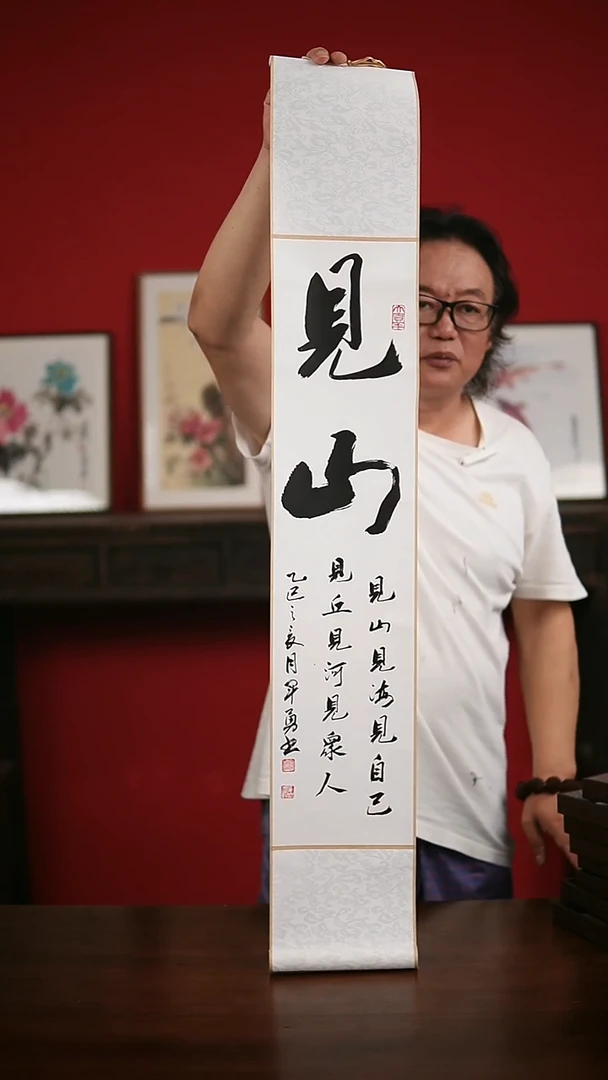 見山
見山見海見自己
見丘見河見衆人
乙巳之亥月早勇书